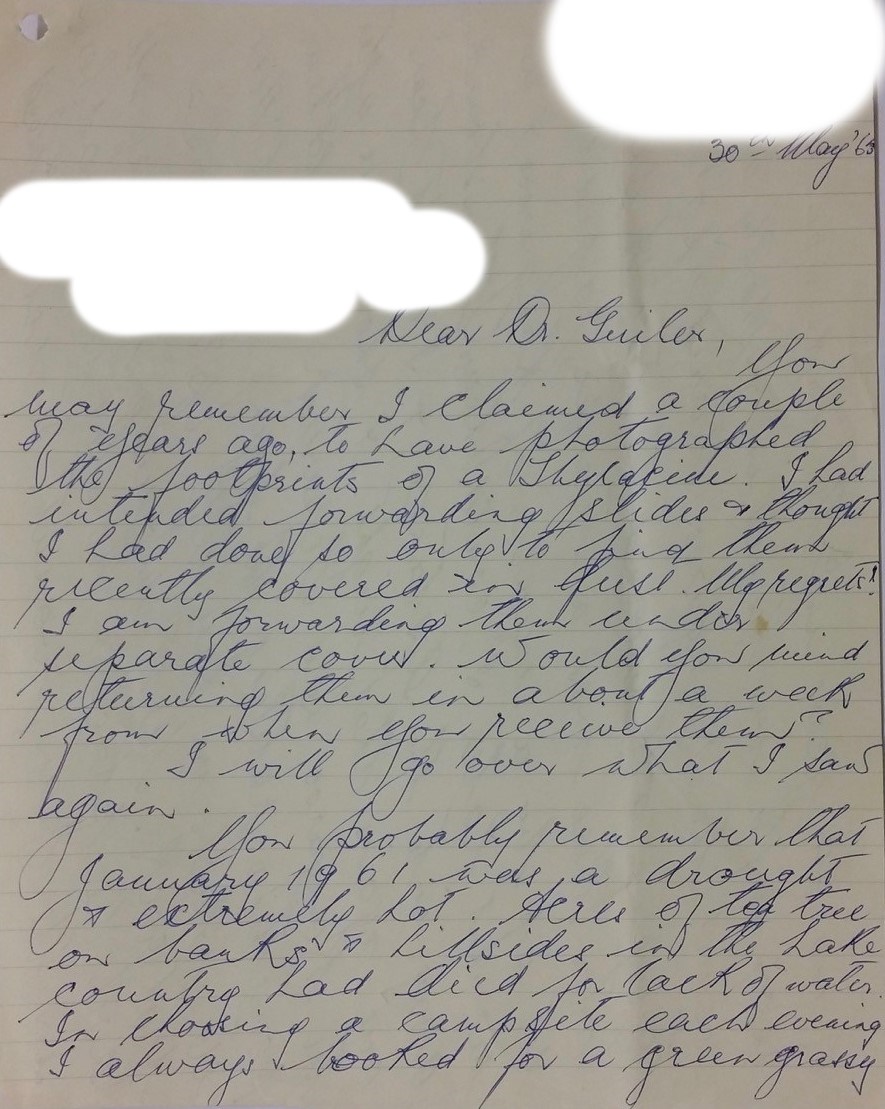 30th May '63
Dear Dr. Guiler,
You
may remember I claimed a couple
of years ago, to have photographed
the footprints of a Thylacine. I had
intended forwarding slides & thought
I had done so only to find them
recently covered in dust. My regrets!
I am forwarding them under
separate cover. Would you mind
returning them in about a week
from when you receive them?
I will go over what I saw
again.
You probably remember that
January 1961 was a drought
& extremely hot. Acres of tea tree
on banks & hillsides in the Lake
country had died for lack of water.
In choosing a campsite each evening
I always looked for a green grassy